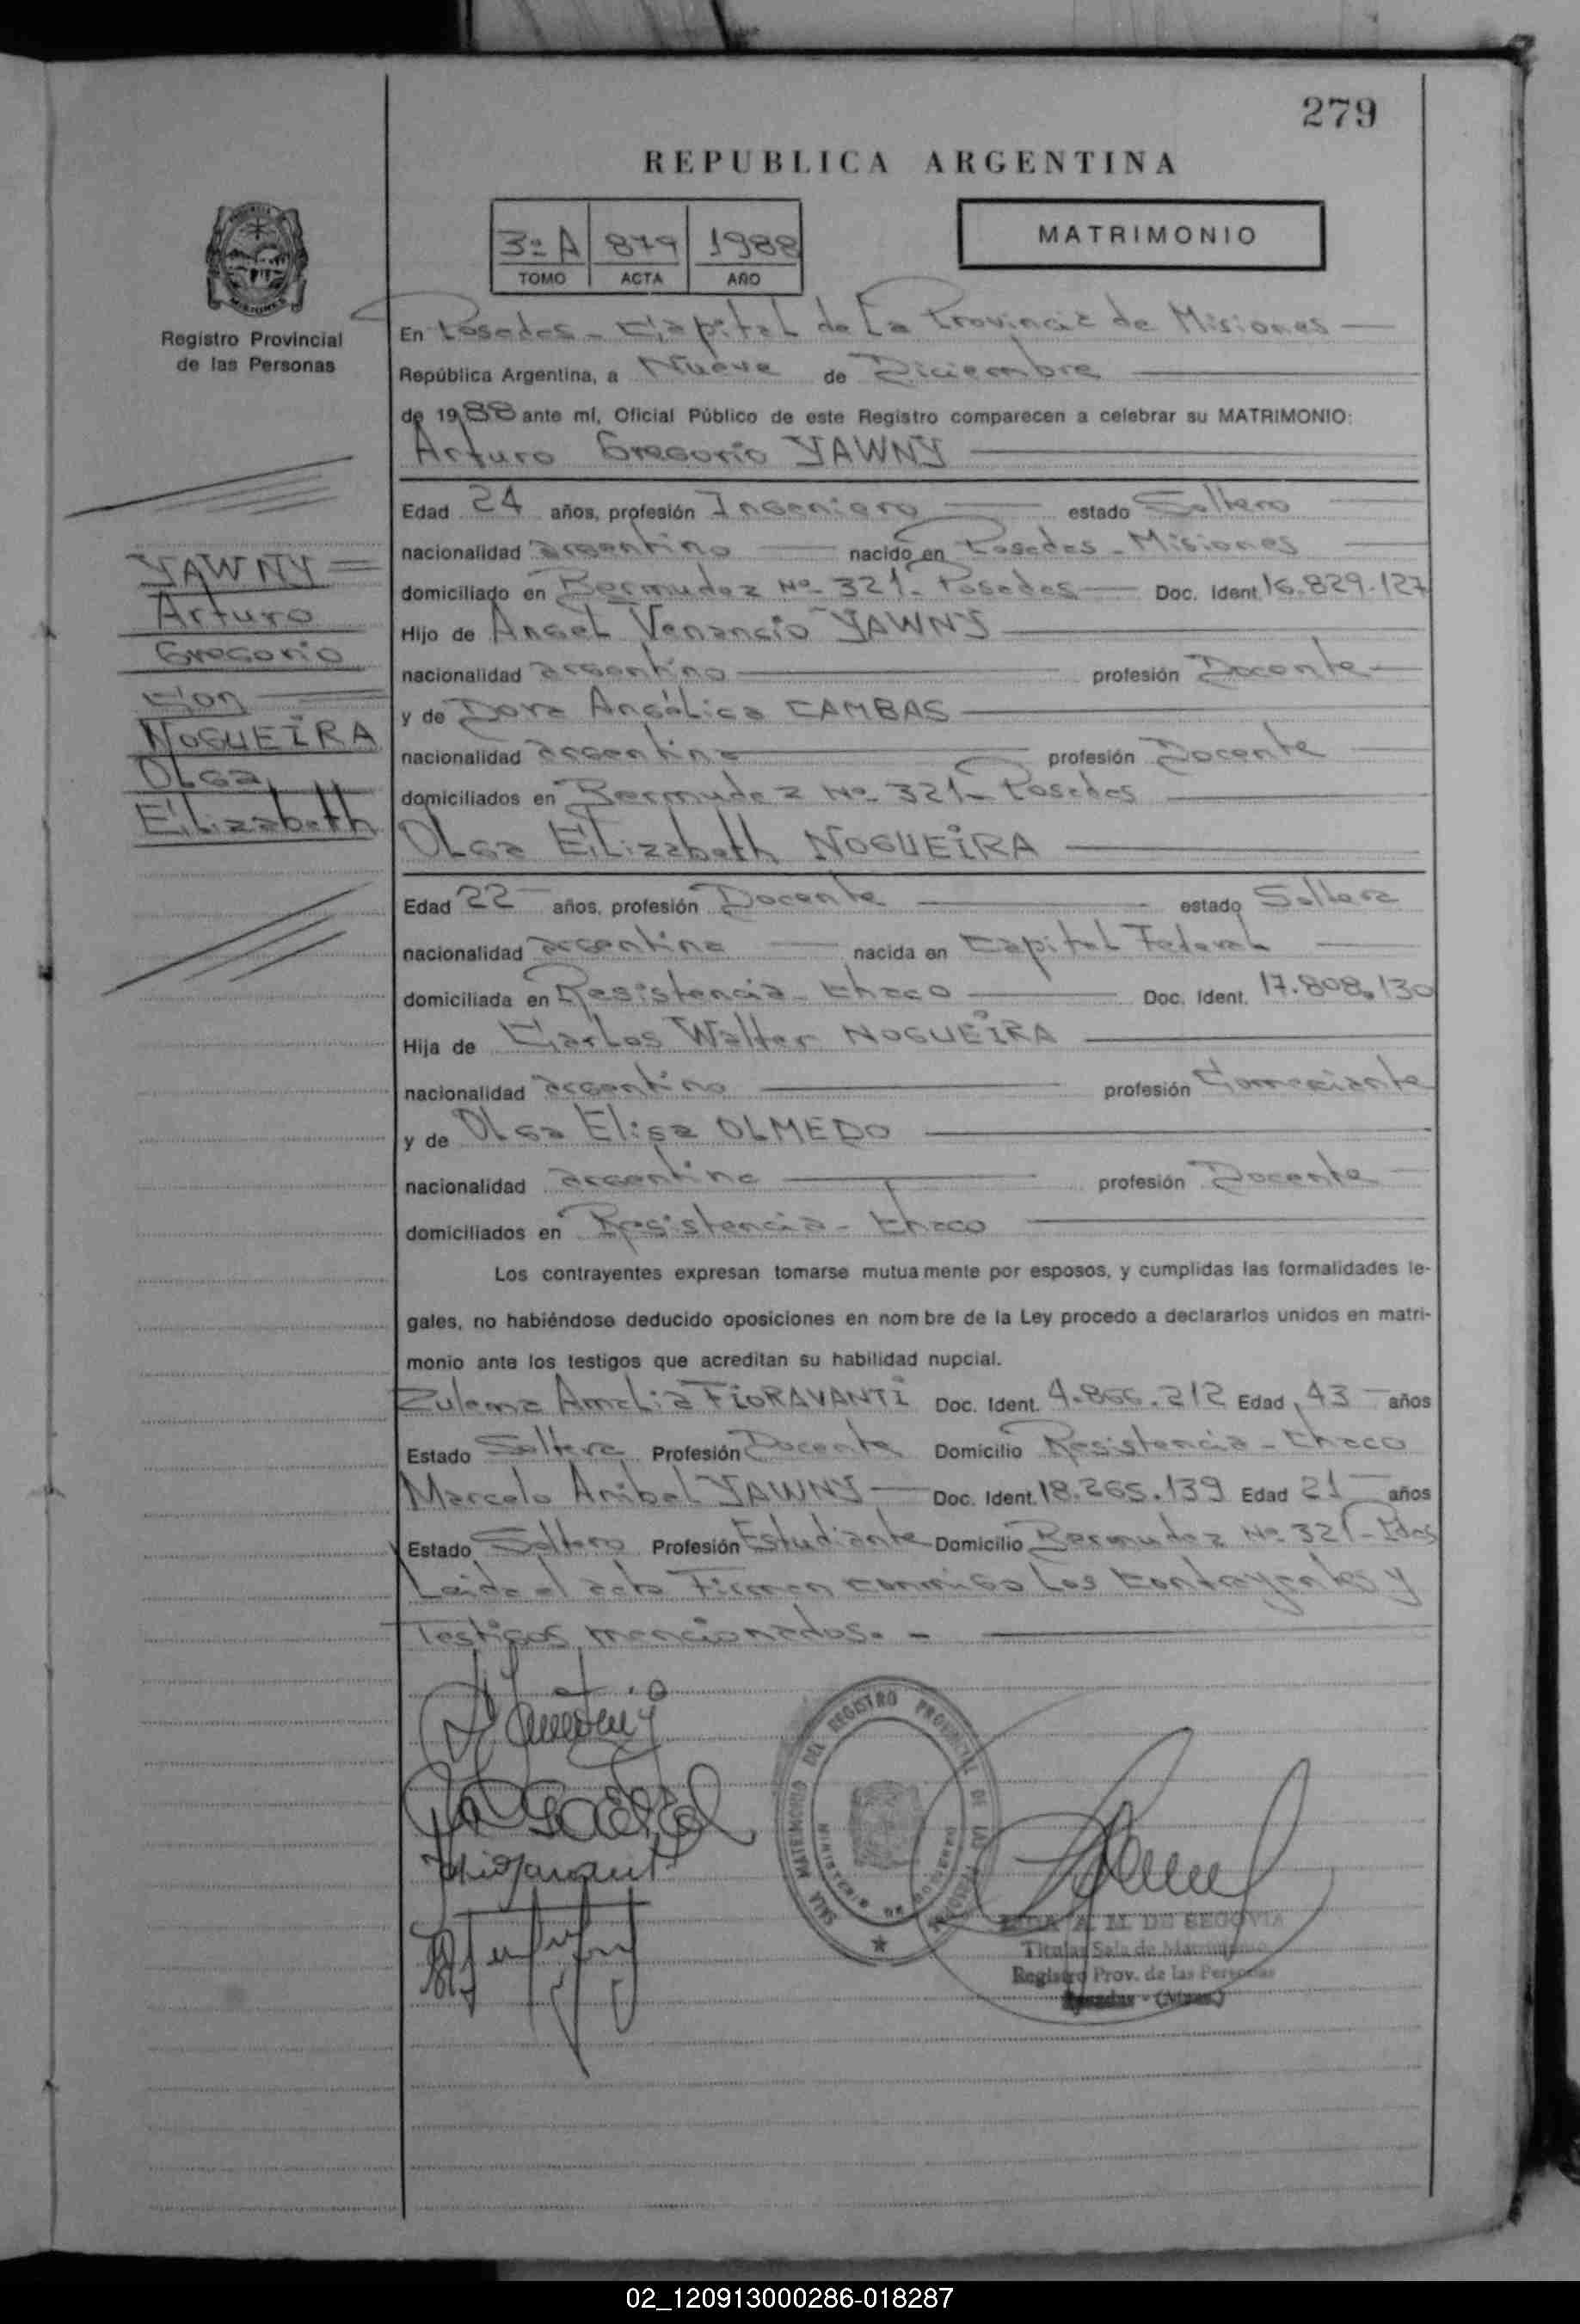 279
REPUBLICA ARGENTINA
3º A 879 1988
TOMO ACTA AÑO
MATRIMONIO
Registro Provincial
de las Personas
En Posadas - Capital de La Provincia de Misiones
República Argentina, a Nueve de Diciembre
de 1988 ante mí, Oficial Público de este Registro comparecen a celebrar su MATRIMONIO:
Arturo Gregorio YAWNY
Edad 24 años, profesión Ingeniero estado Soltero
nacionalidad argentino nacido en Posadas - Misiones
domiciliado en Bermudez Nº 321 - Posadas Doc. Ident. 16.829.127
Hijo de Angel Venancio YAWNY
nacionalidad argentino profesión Docente
y de Dora Angélica CAMBAS
nacionalidad argentina profesión Docente
domiciliados en Bermudez Nº 321 - Posadas
Olga Elizabeth NOGUEIRA
YAWNY
Arturo
Gregorio
Con
NOGUEIRA
Olga
Elizabeth
Edad 22 años, profesión Docente estado Soltera
nacionalidad argentina nacida en Capital Federal
domiciliada en Resistencia - Chaco Doc. Ident. 17.808.130
Hija de Carlos Walter NOGUEIRA
nacionalidad argentino profesión Comerciante
y de Olga Elisa OLMEDO
nacionalidad argentina profesión Docente
domiciliados en Resistencia - Chaco
Los contrayentes expresan tomarse mutuamente por esposos, y cumplidas las formalidades le-
gales, no habiéndose deducido oposiciones en nombre de la Ley procedo a declararlos unidos en matri-
monio ante los testigos que acreditan su habilidad nupcial.
Zulema Amalia FIORAVANTI Doc. Ident. 4.866.212 Edad 43 años
Estado Soltera Profesión Docente Domicilio Resistencia - Chaco
Marcelo Anibal YAWNY Doc. Ident. 18.265.139 Edad 21 años
Estado Soltero Profesión Estudiante Domicilio Bermudez Nº 321 - Pdas
Leida el acta Firman conmigo Los Contrayentes y
Testigos mencionados. -
SALA MATRIMONIO DEL REGISTRO PROVINCIAL DE LAS PERSONAS
A. M. DE SEGOVIA
Titular Sala de Matrimonio
Registro Prov. de las Personas
Posadas - (Mnes.)
02_120913000286-018287